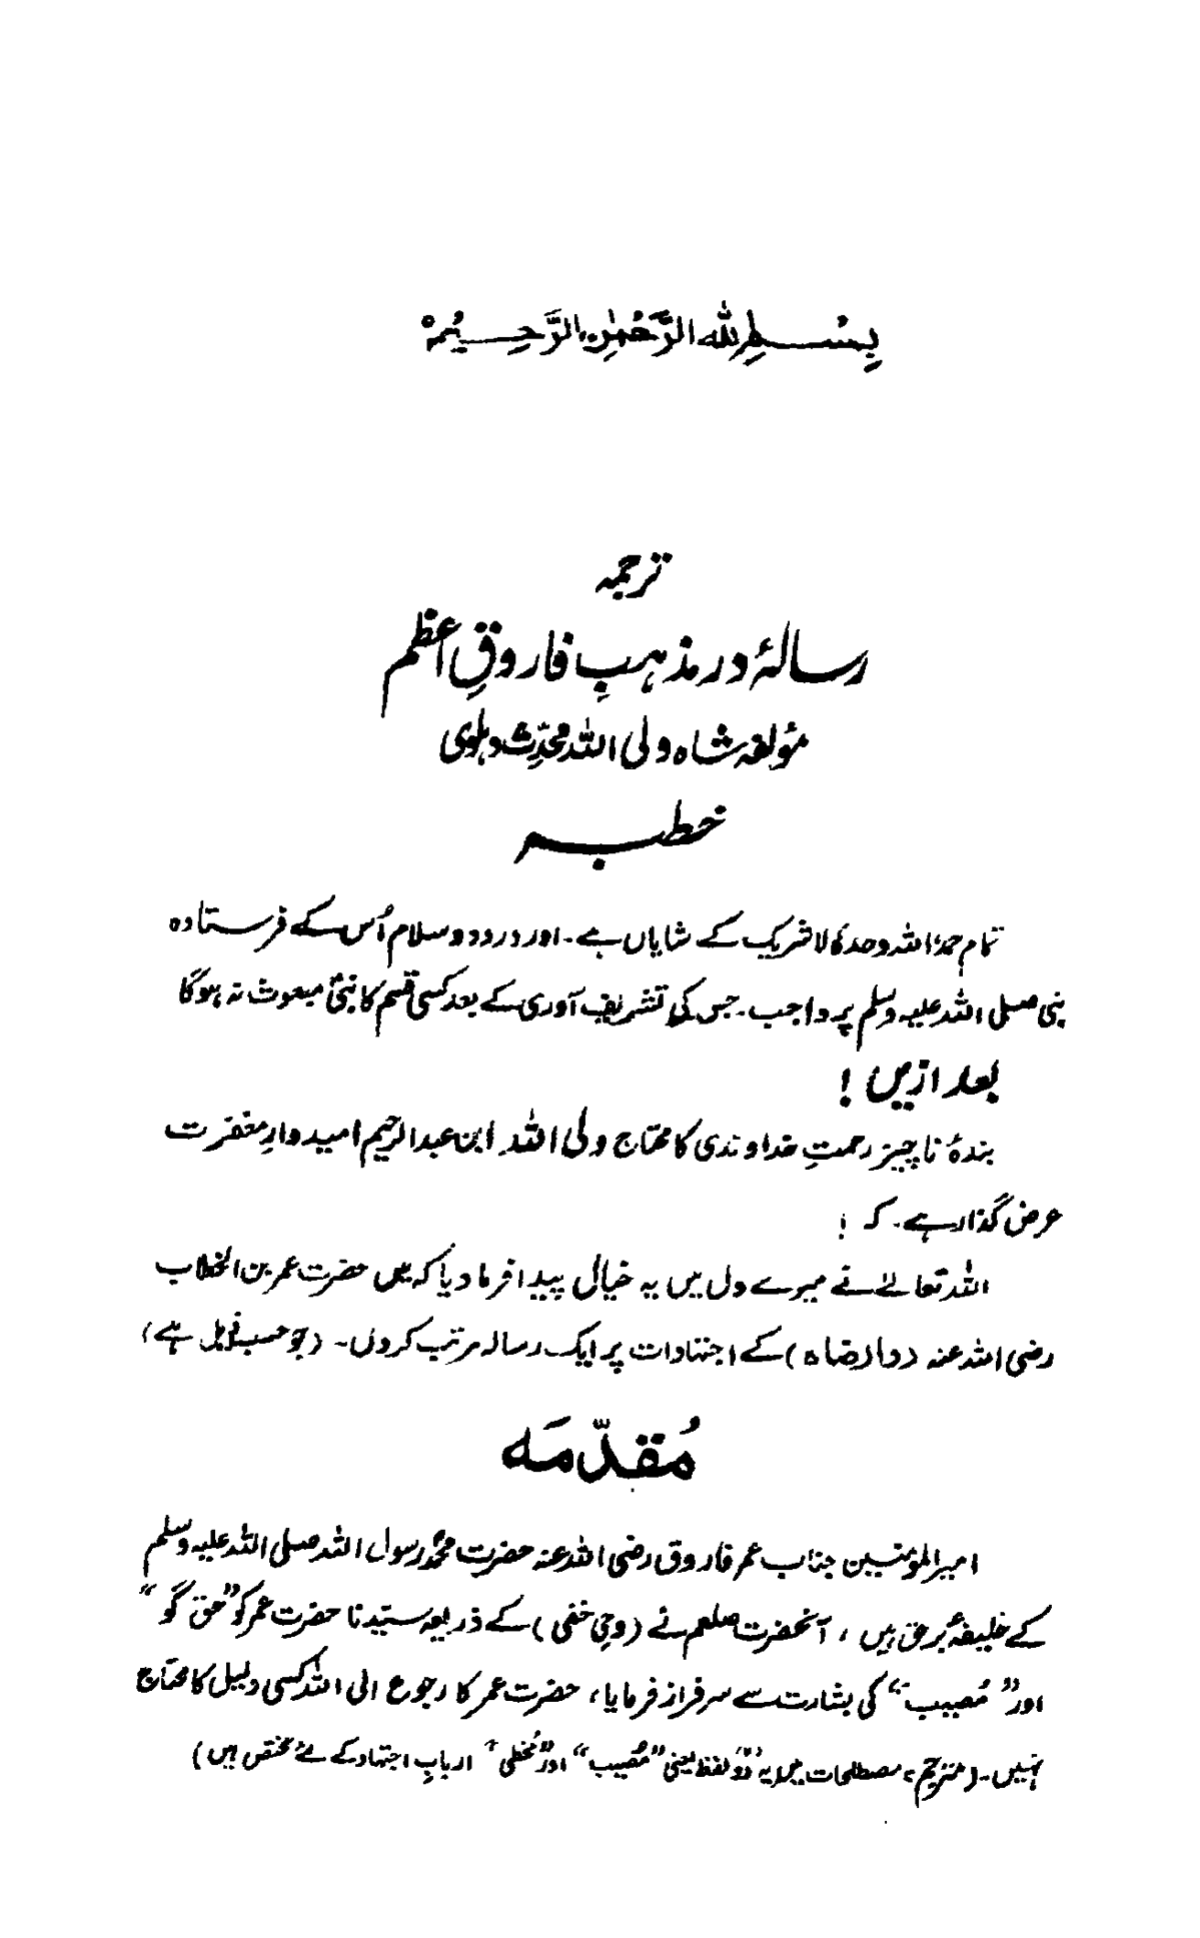 بِسْمِ اللهِ الرَّحْمٰنِ الرَّحِيْمِ
ترجمہ
رسالۂ در مذہبِ فاروقِ اعظم
مؤلفہ شاہ ولی اللہ محدِّث دہلوی
خطبہ
تمام حمد اللہ وحدہٗ لا شریک کے شایاں ہے۔ اور درود و سلام اُس کے فرستادہ
نبی صلی اللہ علیہ وسلم پر واجب۔ جس کی تشریف آوری کے بعد کسی قسم کا نبی مبعوث نہ ہوگا
بعد ازیں !
بندۂ ناچیز رحمتِ خداوندی کا محتاج ولی اللہ ابن عبدالرحیم امیدوارِ مغفرت
عرض گذار ہے۔ کہ !
اللہ تعالےٰ نے میرے دل میں یہ خیال پیدا فرما دیا کہ میں حضرت عمر بن الخطاب
رضی اللہ عنہ (وارضاہ) کے اجتہادات پر ایک رسالہ مرتب کروں۔ (جو حسب ذیل ہے)
مُقدّمَہ
امیر المؤمنین جناب عمر فاروق رضی اللہ عنہ حضرت محمدؐ رسول اللہ صلی اللہ علیہ وسلم
کے خلیفۂ برحق ہیں ، آنحضرت صلعم نے (وحیِ خفی) کے ذریعہ سیّدنا حضرت عمر کو "حق گو"
اور "مُصیب" کی بشارت سے سرفراز فرمایا، حضرت عمر کا رجوع الی اللہ کسی دلیل کا محتاج
نہیں۔ (مترجم ، مصطلحات میں یہ دو لفظ یعنی "مُصیب" اور "مُخطی" اربابِ اجتہاد کے لئے مختص ہیں)